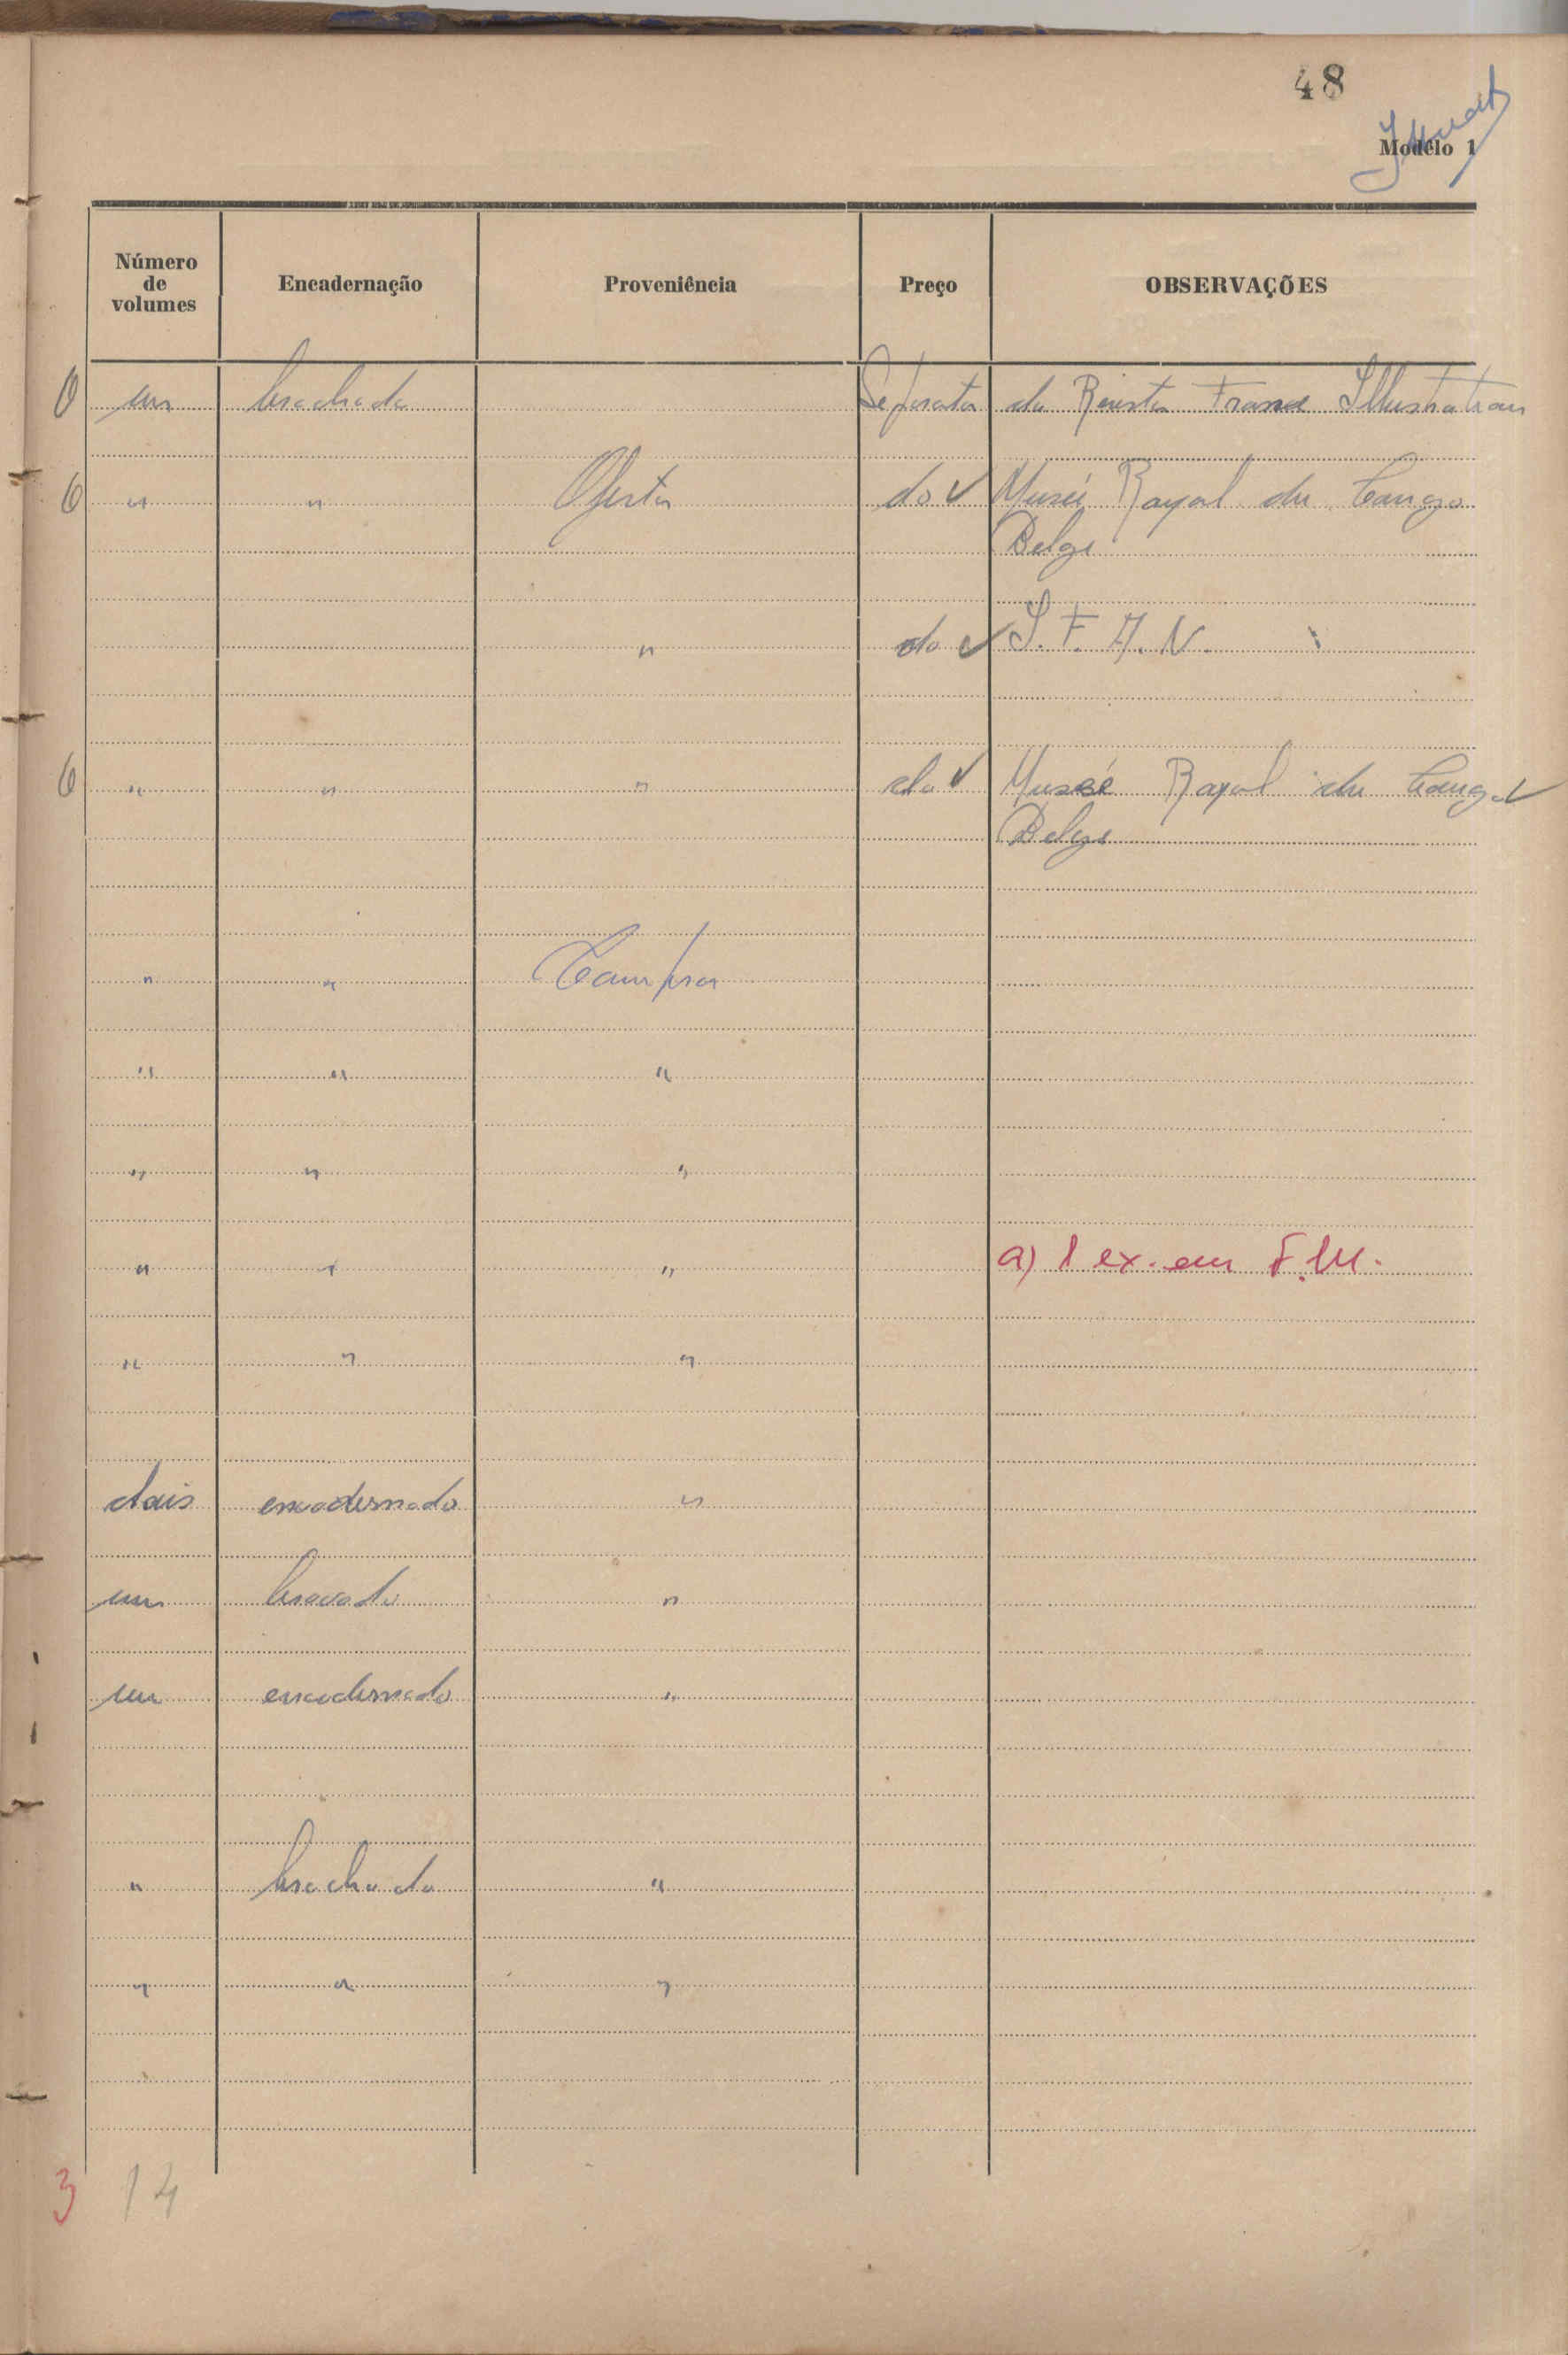 48
Modêlo 1
Número de volumes Encadernação Proveniência Preço OBSERVAÇÕES
0 um brochado Separata da Revista France Illustration
6 " " Oferta do ✓ Musée Royal du Congo
Belge
" do ✓ I. F. A. N.
6 " " " do ✓ Musée Royal du Congo ✓
Belge
" " Compra
" " "
" " "
" " " a) 1 ex. em F.M.
" " "
dois encadernado "
um brochado "
um encadernado "
" brochado "
" " "
3 14